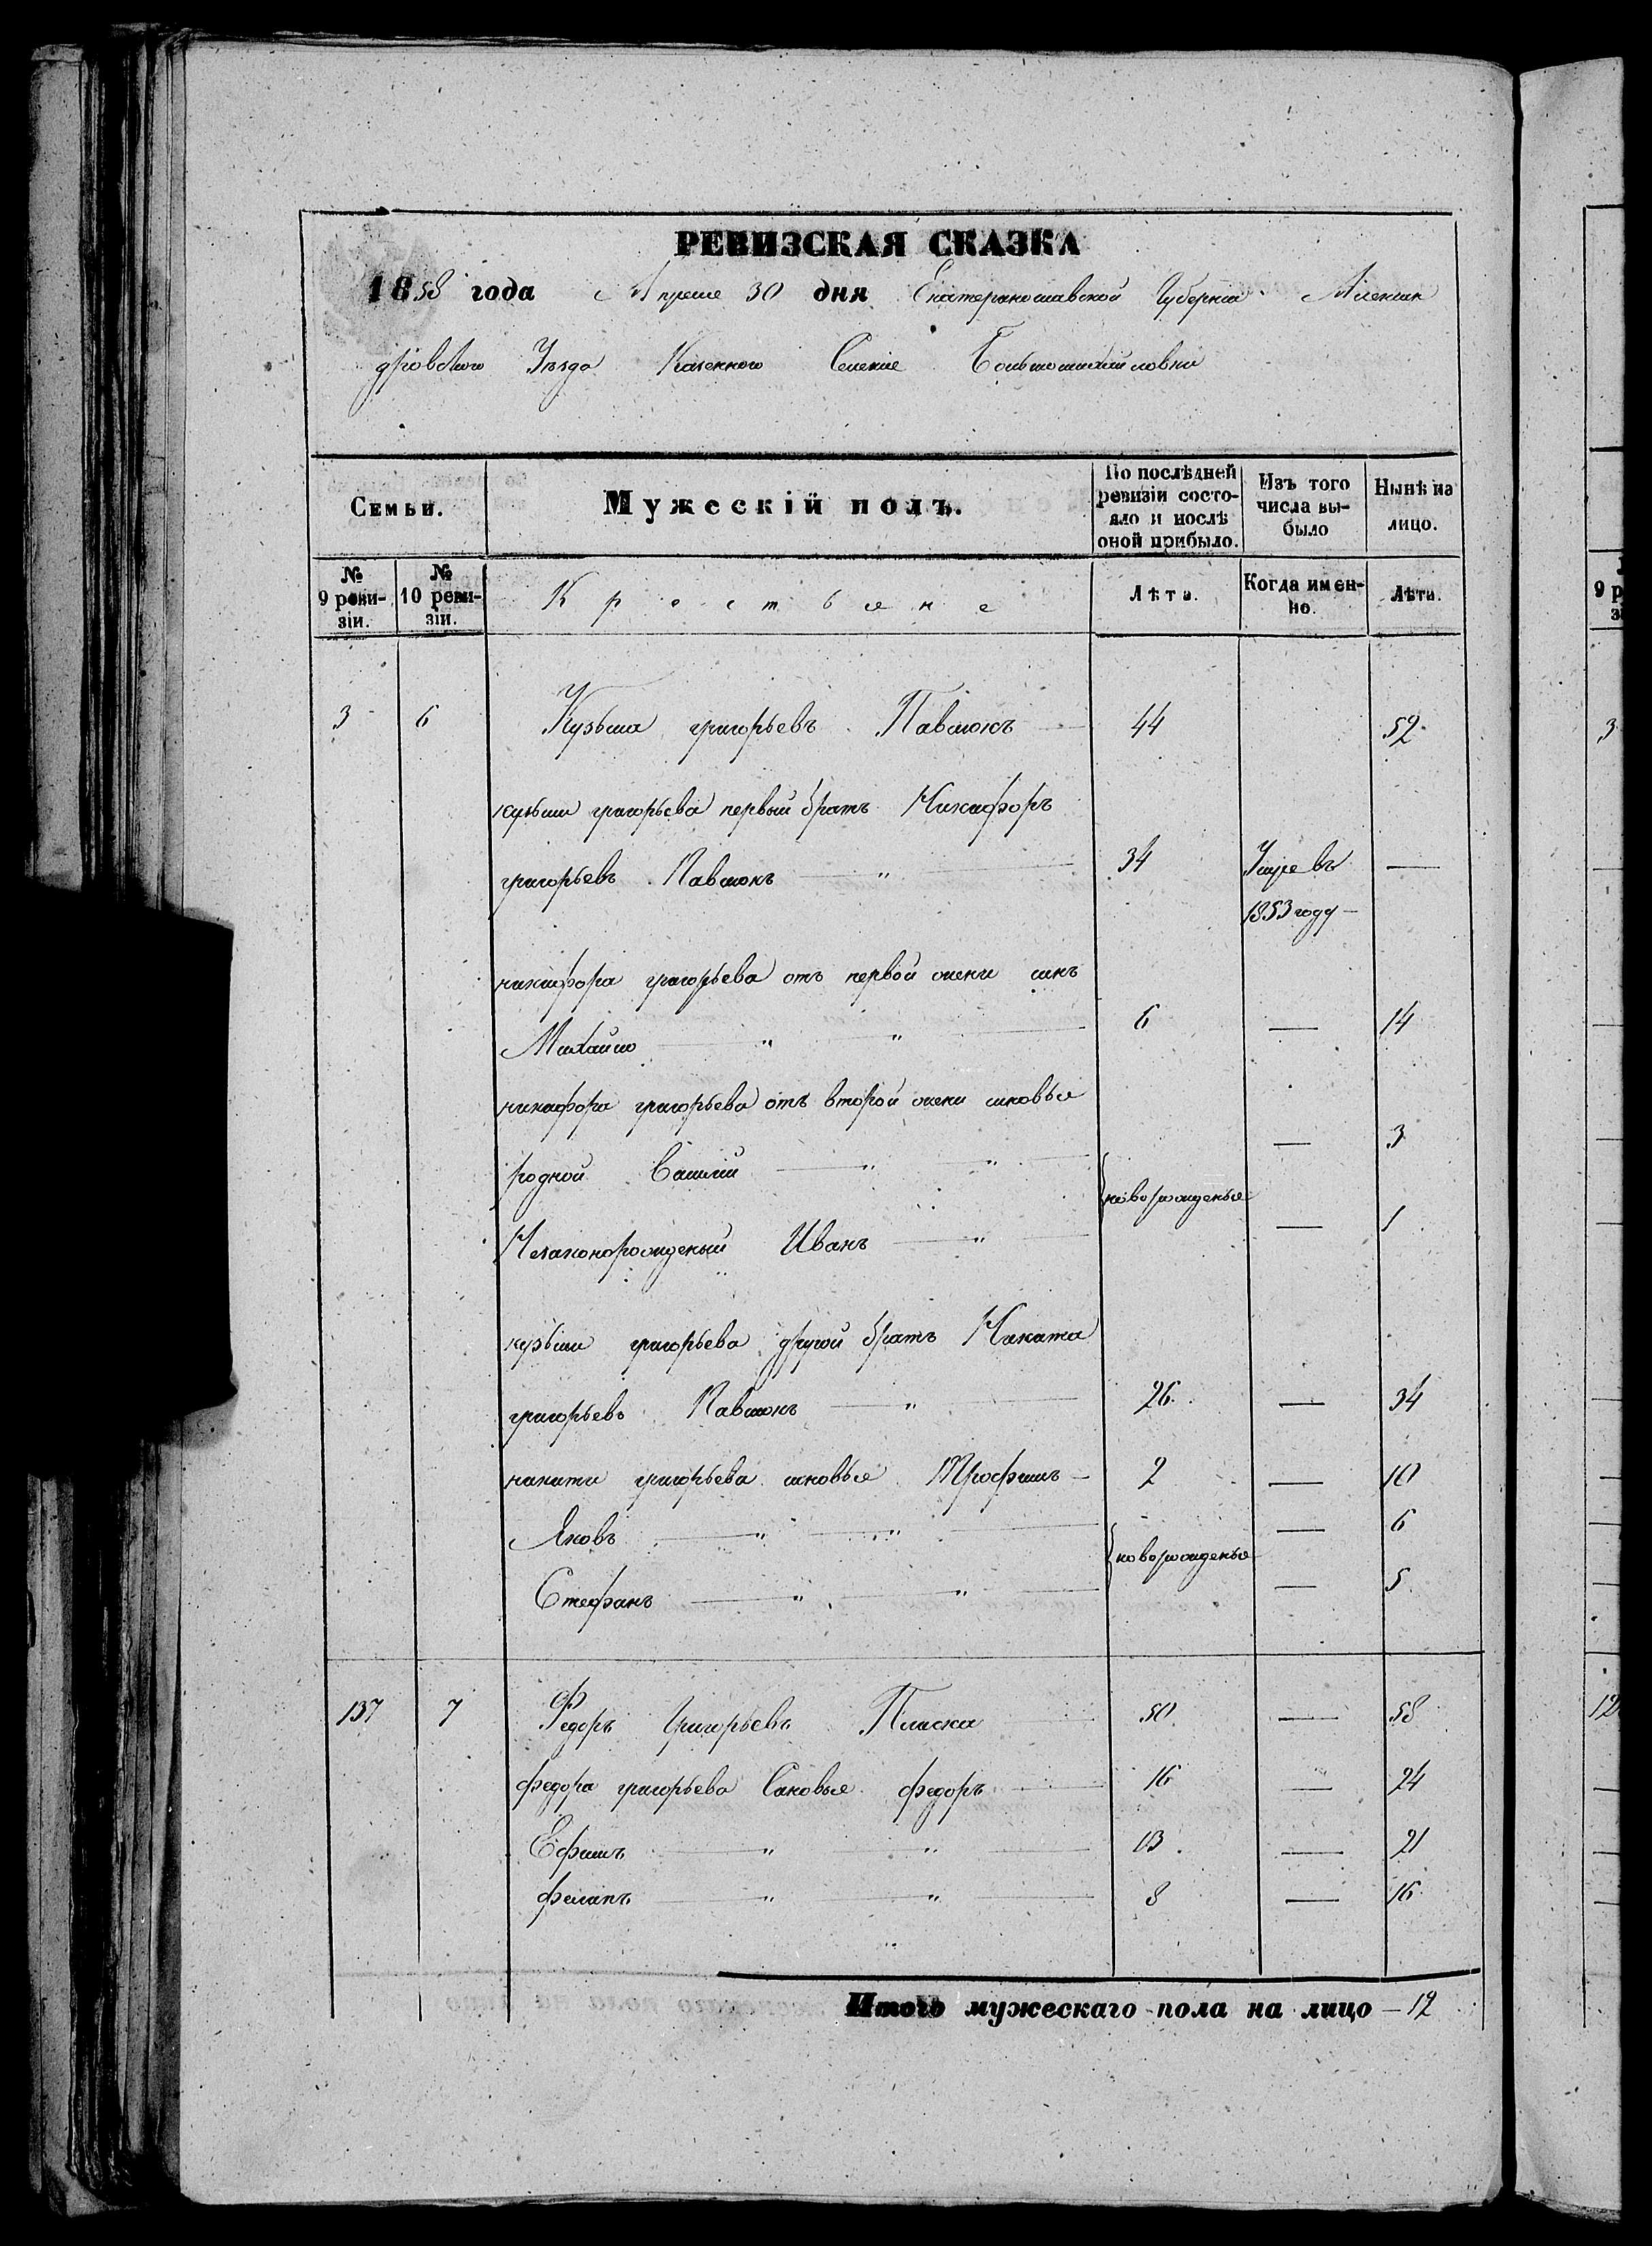 РЕВИЗСКАЯ СКАЗКА
1858 года Апреля 30 дня Екатеринославской Губернiи Алексан
дровского Уезда Казенного Селенiя Большомихайловки
Семьи. Мужескій полъ. По послѣдней ревизіи состо- яло и послѣ оной прибыло. Изъ того числа вы- было Нынѣ на лицо.
№ 9 реви- зіи. № 10 реви- зіи. Крестьяне Лѣта. Когда имен- но. Лѣта.
3 6 Кузьма григорьевъ Павлюкъ 44 52
кузьмы григорьева первый братъ Никифоръ
григорьевъ Павлюкъ — " — 34 Умре въ —
1853 году —
никифора григорьева отъ первой жени синъ
Михайло — " — " — 6 — 14
никифора григорьева отъ второй жени сыновья
родной Василий — " — " — — 3
новорожденые
Незаконорожденый Иванъ — " — — 1
кузьмы григорьева другой братъ Никита
григорьевъ Павлюкъ — " — 26 — 34
никити григорьева сыновья Трофимъ — 2 — 10
Яковъ — " — " — — 6
новорожденые
Стефанъ — " — " — — 5
137 7 Федоръ Григорьевъ Пласка 50 — 58
федора григорьева Сыновья федоръ — 16 — 24
Ефимъ — " — " — 13 — 21
филипъ — " — " — 8 — 16
Итого мужескаго пола на лицо — 12